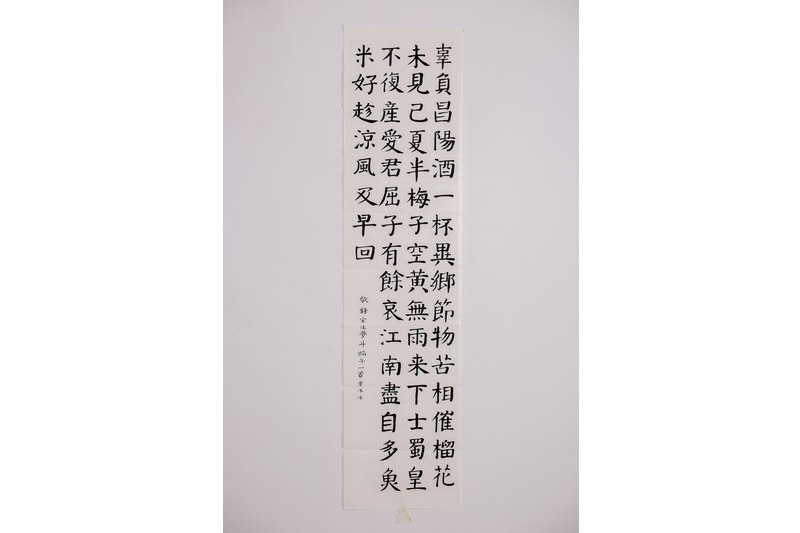 辜負昌陽酒一杯異鄉節物苦相催榴花
未見己夏半梅子空黄無雨来下士蜀皇
不復産愛君屈子有餘哀江南盡自多奐
米好趁涼風及早回
敬録宋汪夢斗端午一首